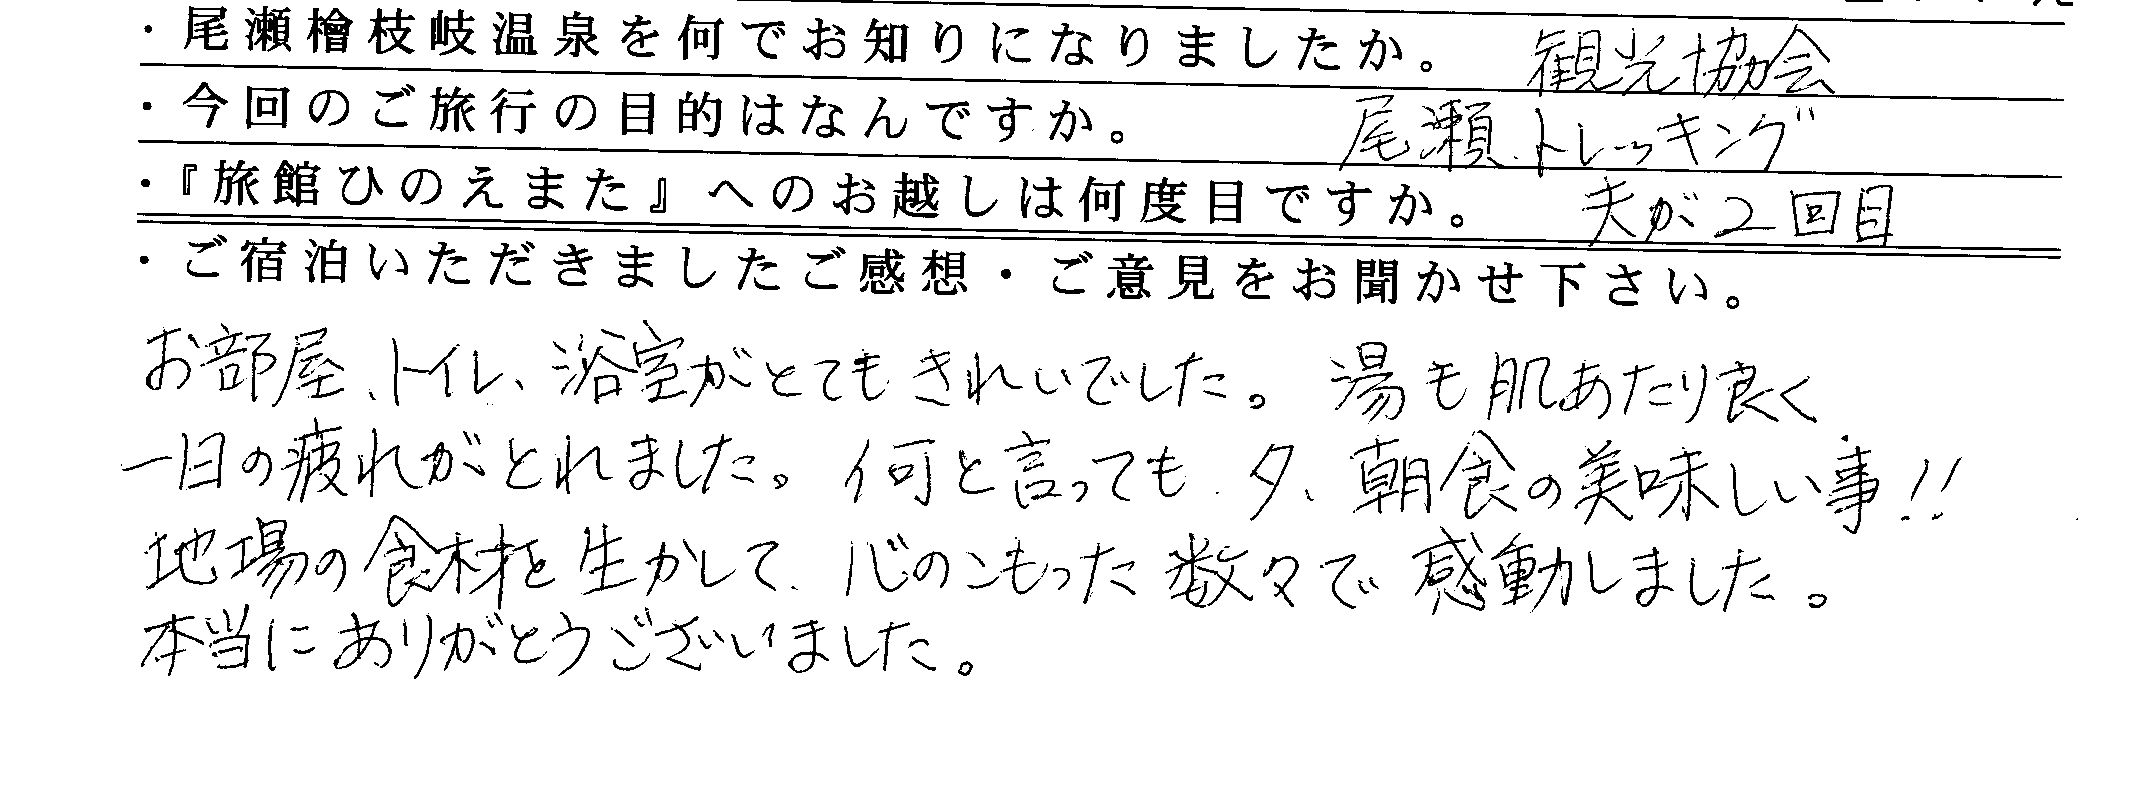 ・尾瀬檜枝岐温泉を何でお知りになりましたか。 観光協会
・今回のご旅行の目的はなんですか。 尾瀬トレッキング
・『旅館ひのえまた』へのお越しは何度目ですか。 夫が2回目
・ご宿泊いただきましたご感想・ご意見をお聞かせ下さい。
お部屋、トイレ、浴室がとてもきれいでした。湯も肌あたり良く
一日の疲れがとれました。何と言っても、夕、朝食の美味しい事!!
地場の食材を生かして、心のこもった数々で感動しました。
本当にありがとうございました。